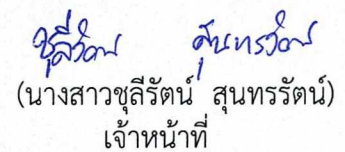 ชุลีรัตน์ สุนทรรัตน์
(นางสาวชุลีรัตน์ สุนทรรัตน์)
เจ้าหน้าที่